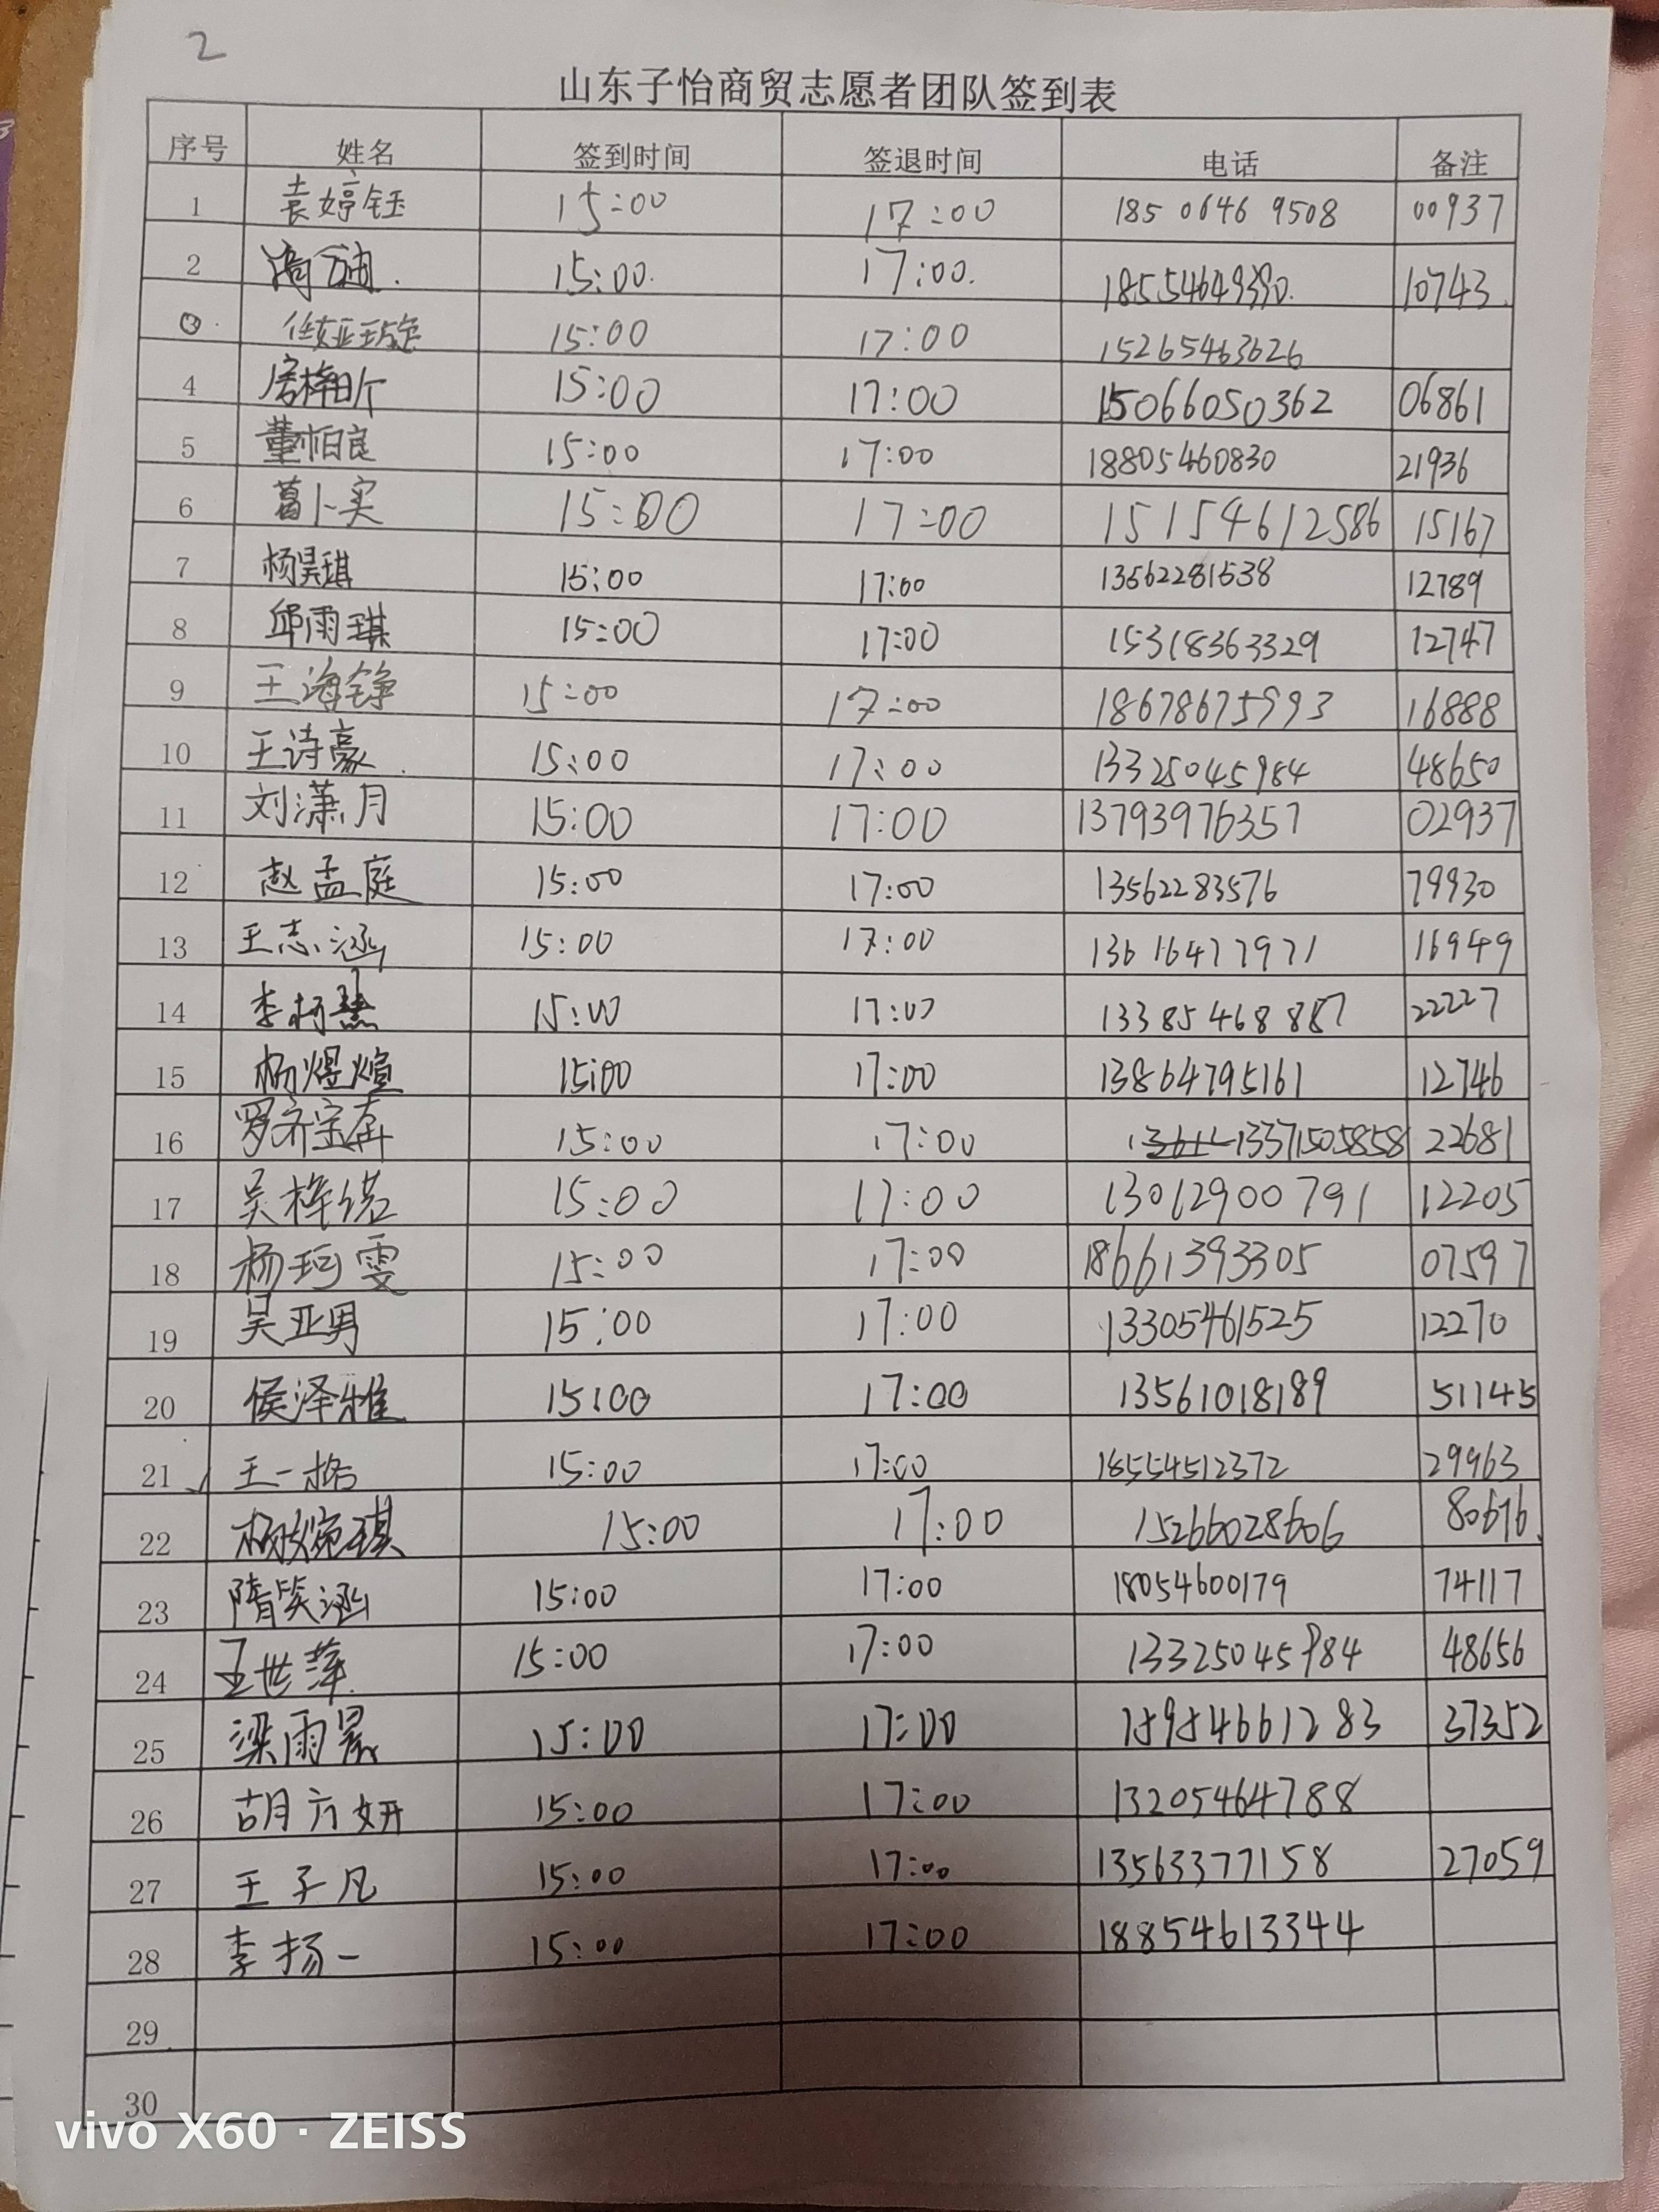 2
山东子怡商贸志愿者团队签到表
序号 姓名 签到时间 签退时间 电话 备注
1 袁婷钰 15:00 17:00 185 0646 9508 00937
2 15:00. 17:00. 18554649390. 10743.
15:00 17:00 15265463626
4 15:00 17:00 15066050362 06861
5 董柏良 15:00 17:00 18805460830 21936
6 葛卜实 15:00 17:00 15154612586 15167
7 杨昊琪 15:00 17:00 13562281538 12789
8 邱雨琪 15:00 17:00 15318363329 12747
9 王海铮 15:00 17:00 18678675993 16888
10 王诗豪 15:00 17:00 13325045984 48650
11 刘潇月 15:00 17:00 13793976357 02937
12 赵孟庭 15:00 17:00 13562283576 79930
13 王志涵 15:00 17:00 136 16477971 16949
14 李柯慧 15:00 17:00 13385468887 22227
15 杨煜煊 15:00 17:00 13864795161 12746
16 15:00 17:00 13371505858 22681
17 吴梓诺 15:00 17:00 13012900791 12205
18 杨珂雯 15:00 17:00 18661393305 07597
19 吴亚男 15:00 17:00 13305461525 12270
20 侯泽雅 15:00 17:00 13561018189 51145
21 王一格 15:00 17:00 18554512372 29963
22 杨婉琪 15:00 17:00 15266028606 80676.
23 隋笑涵 15:00 17:00 18054600179 74117
24 王世萍 15:00 17:00 13325045984 48656
25 梁雨晨 15:00 17:00 15954661283 37352
26 胡方妍 15:00 17:00 13205464788
27 王子凡 15:00 17:00 13563377158 27059
28 李扬一 15:00 17:00 18854613344
29
30
vivo X60 · ZEISS